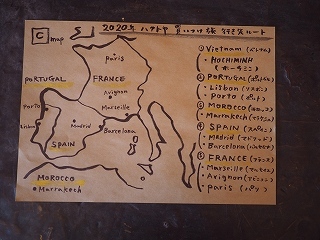 C map
2020年 ハナトヤ 買いつけ旅 行き先ルート
Paris
FRANCE
Avignon
Marseille
PORTUGAL
Porto
Lisbon
Madrid
Barcelona
SPAIN
MOROCCO
Marrakech
① Vietnam (ベトナム)
・HOCHIMINH
(ホーチミン)
② PORTUGAL (ポルトガル)
・Lisbon (リスボン)
・Porto (ポルト)
③ MOROCCO (モロッコ)
・Marrakech (マラケシュ)
④ SPAIN (スペイン)
・Madrid (マドリッド)
・Barcelona (バルセロナ)
⑤ FRANCE (フランス)
・Marseille (マルセイユ)
・Avignon (アビニョン)
・Paris (パリ)